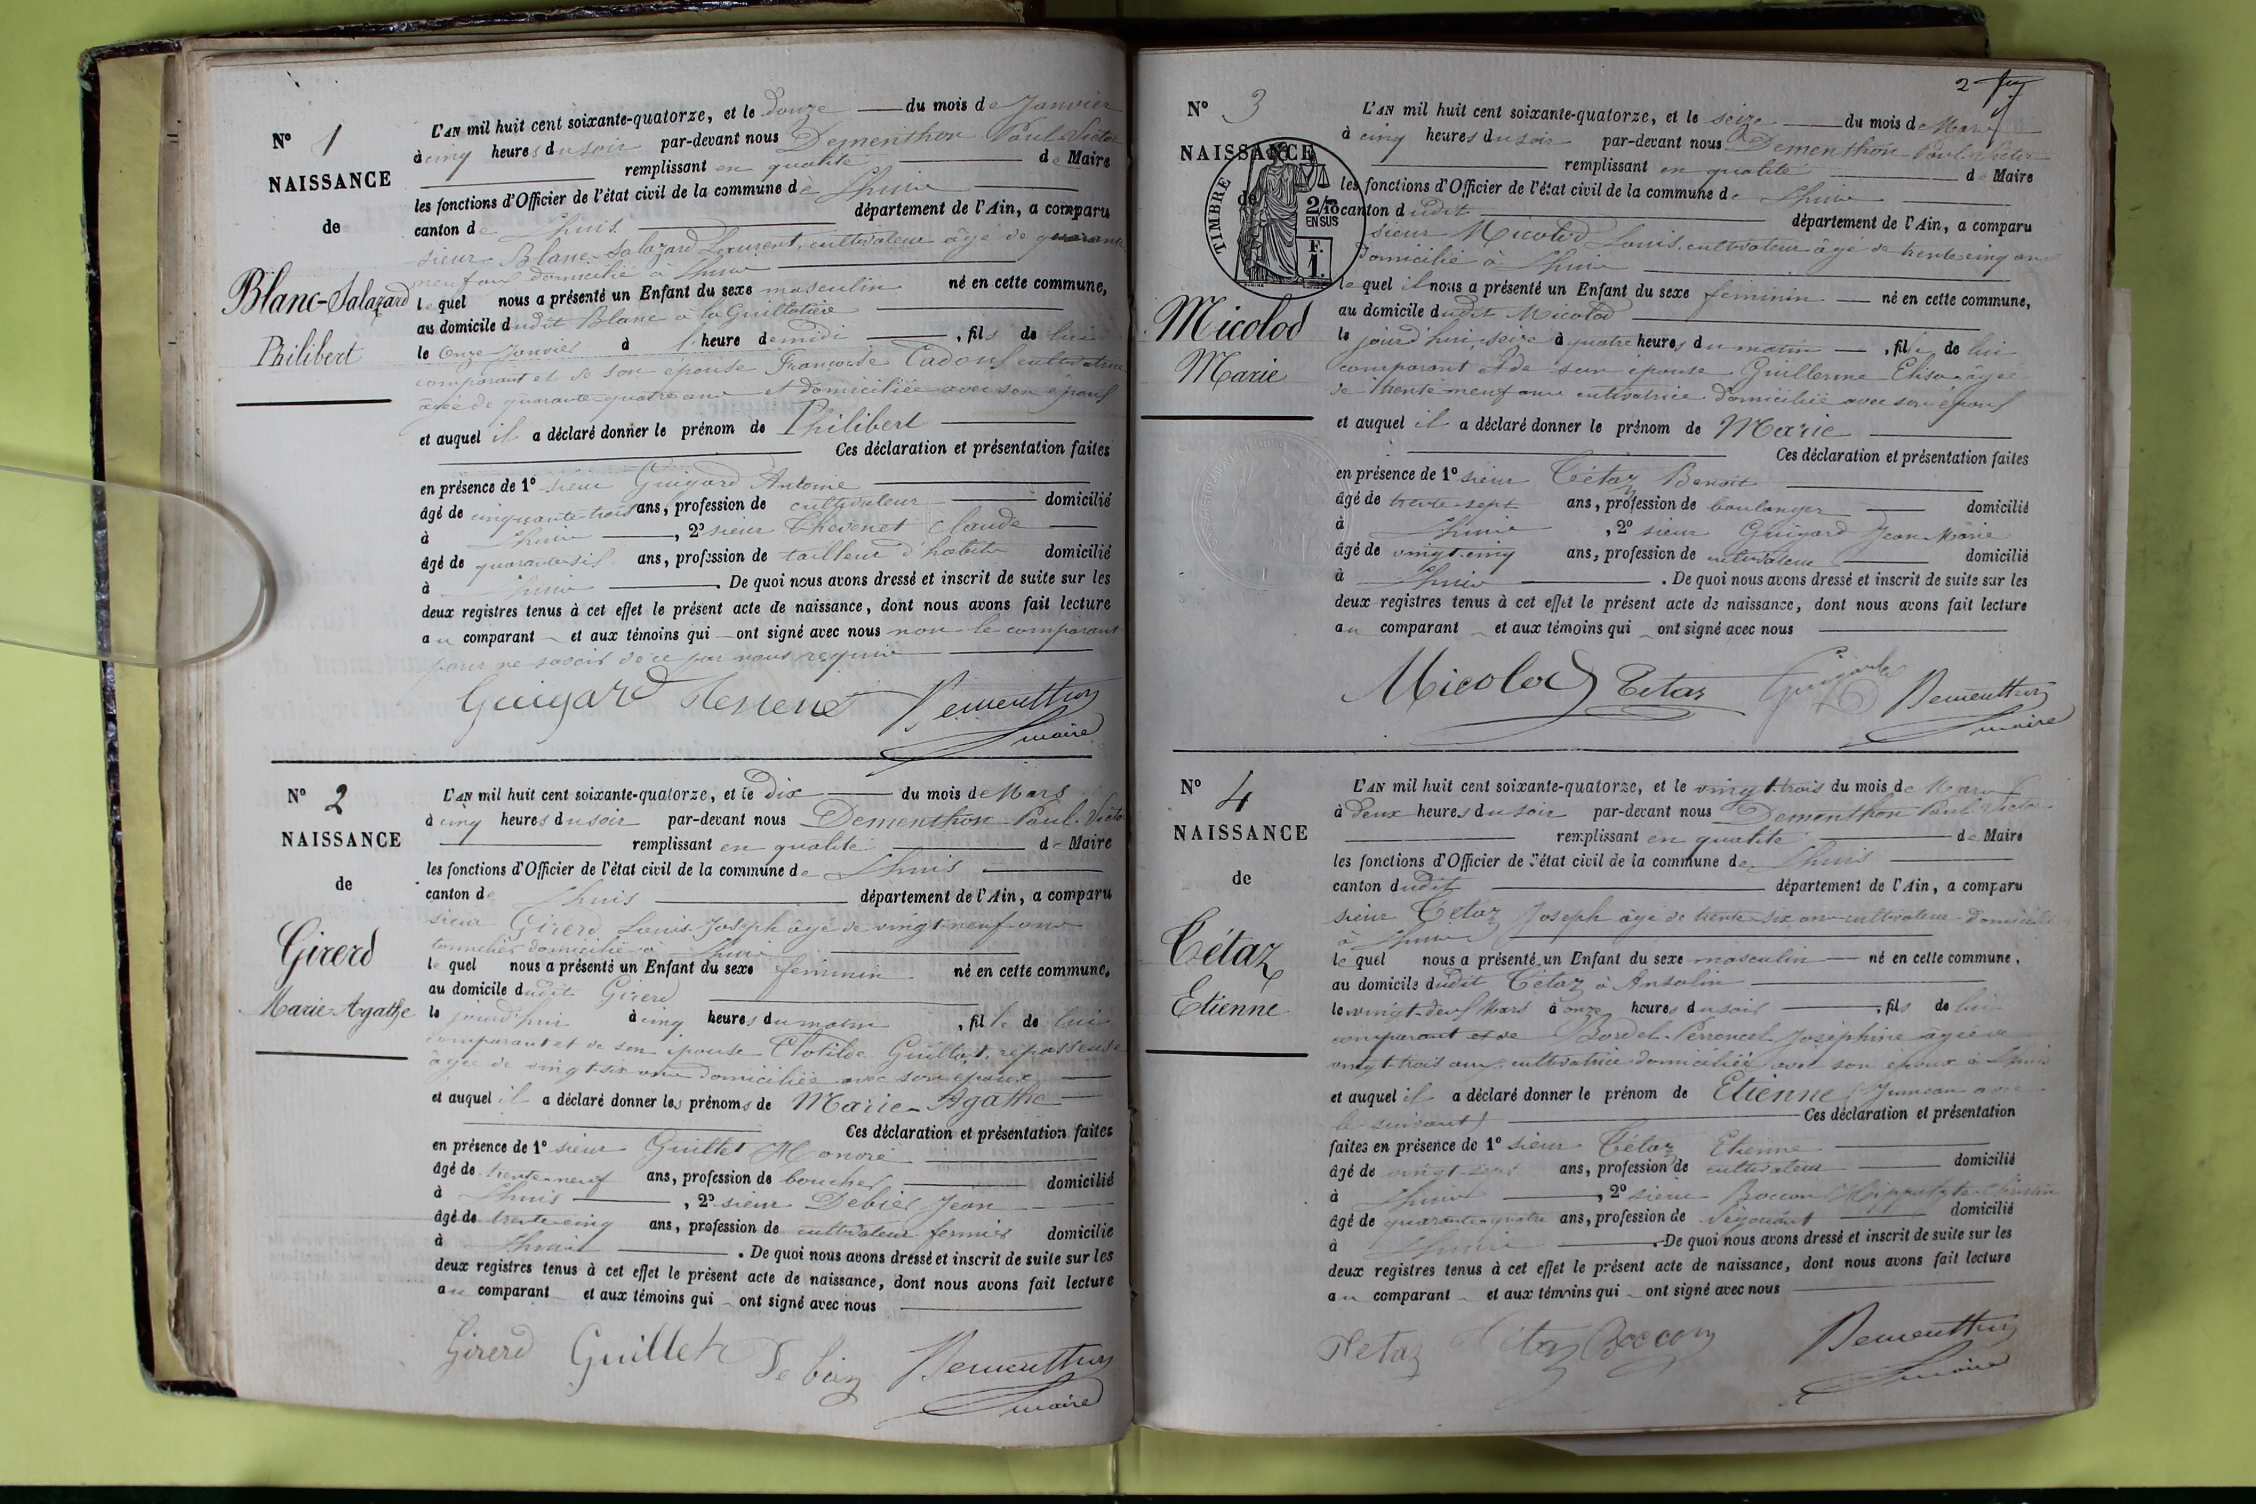 N° 1
NAISSANCE
de
Blanc-Salazard
Philibert
L'AN mil huit cent soixante-quatorze, et le douze du mois de Janvier
à cinq heures du soir par-devant nous Dementhon Paul Victor
remplissant en qualité de Maire
les fonctions d'Officier de l'état civil de la commune de Lhuis
canton de Lhuis département de l'Ain, a comparu
sieur Blanc-Salazard Laurent, cultivateur âgé de quarante
neuf ans domicilié à Lhuis
lequel nous a présenté un Enfant du sexe masculin né en cette commune,
au domicile dudit Blanc à la Guillotière
le onze Janvier à l' heure de midi , fils de lui
comparant et de son épouse Françoise cultivatrice
âgée de quarante-quatre ans et domiciliée avec son époux
et auquel il a déclaré donner le prénom de Philibert
Ces déclaration et présentation faites
en présence de 1° sieur Guigard Antoine
âgé de cinquante-trois ans, profession de cultivateur domicilié
à Lhuis , 2° sieur Thevenet Claude
âgé de quarante-six ans, profession de tailleur d'habits domicilié
à Lhuis . De quoi nous avons dressé et inscrit de suite sur les
deux registres tenus à cet effet le présent acte de naissance, dont nous avons fait lecture
au comparant et aux témoins qui ont signé avec nous non le comparant
pour ne savoir de ce par nous requis
Guigard Dementhon
maire
N° 2
NAISSANCE
de
Girerd
Marie-Agathe
L'AN mil huit cent soixante-quatorze, et le dix du mois de Mars
à cinq heures du soir par-devant nous Dementhon Paul Victor
remplissant en qualité de Maire
les fonctions d'Officier de l'état civil de la commune de Lhuis
canton de Lhuis département de l'Ain, a comparu
sieur Girerd Louis Joseph âgé de vingt-neuf ans
tonnelier domicilié à Lhuis
lequel nous a présenté un Enfant du sexe feminin né en cette commune,
au domicile dudit Girerd
le jourd'hui à cinq heures du matin , fille de lui
comparant et de son épouse Clotilde Guillot, repasseuse
âgée de vingt-six ans domiciliée avec son époux
et auquel il a déclaré donner les prénoms de Marie-Agathe
Ces déclaration et présentation faites
en présence de 1° sieur Guillet Honoré
âgé de trente-neuf ans, profession de boucher domicilié
à Lhuis , 2° sieur Debier Jean
âgé de trente-cinq ans, profession de cultivateur fermier domicilié
à Lhuis . De quoi nous avons dressé et inscrit de suite sur les
deux registres tenus à cet effet le présent acte de naissance, dont nous avons fait lecture
au comparant et aux témoins qui ont signé avec nous
Girerd Guillet Dementhon
maire
2
N° 3
NAISSANCE
de
TIMBRE
2/10
EN SUS
F.
1.
Micolod
Marie
L'AN mil huit cent soixante-quatorze, et le seize du mois de Mars
à cinq heures du soir par-devant nous Dementhon Paul Victor
remplissant en qualité de Maire
les fonctions d'Officier de l'état civil de la commune de Lhuis
canton dudit département de l'Ain, a comparu
sieur Micolod Louis cultivateur âgé de trente-cinq ans
domicilié à Lhuis
lequel il nous a présenté un Enfant du sexe féminin né en cette commune,
au domicile dudit Micolod
le jourd'hui, seize à quatre heures du matin , fille de lui
comparant et de son épouse Guillerme Elisa âgée
de trente-neuf ans cultivatrice domiciliée avec son époux
et auquel il a déclaré donner le prénom de Marie
Ces déclaration et présentation faites
en présence de 1° sieur Tétaz Benoît
âgé de trente-sept ans, profession de boulanger domicilié
à Lhuis , 2° sieur Guigard Jean Marie
âgé de vingt-cinq ans, profession de cultivateur domicilié
à Lhuis . De quoi nous avons dressé et inscrit de suite sur les
deux registres tenus à cet effet le présent acte de naissance, dont nous avons fait lecture
au comparant et aux témoins qui ont signé avec nous
Micolod Tetaz Dementhon
maire
N° 4
NAISSANCE
de
Tétaz
Etienne
L'AN mil huit cent soixante-quatorze, et le vingt-trois du mois de Mars
à deux heures du soir par-devant nous Dementhon Paul Victor
remplissant en qualité de Maire
les fonctions d'Officier de l'état civil de la commune de Lhuis
canton dudit département de l'Ain, a comparu
sieur Tétaz Joseph âgé de trente-six ans cultivateur domicilié
à Lhuis
lequel nous a présenté un Enfant du sexe masculin né en cette commune,
au domicile dudit Tétaz à Ansolin
le vingt-deux Mars à onze heures du soir , fils de lui
comparant et de Bordel-Perroncel Joséphine âgée de
vingt-trois ans, cultivatrice domiciliée avec son époux à Lhuis
et auquel il a déclaré donner le prénom de Etienne (Jumeau avec
le suivant) Ces déclaration et présentation
faites en présence de 1° sieur Tétaz Etienne
âgé de vingt-sept ans, profession de cultivateur domicilié
à Lhuis , 2° sieur Boccon Hippolyte
âgé de quarante-quatre ans, profession de négociant domicilié
à Lhuis . De quoi nous avons dressé et inscrit de suite sur les
deux registres tenus à cet effet le présent acte de naissance, dont nous avons fait lecture
au comparant et aux témoins qui ont signé avec nous
Tetaz Tetaz Boccon Dementhon
maire